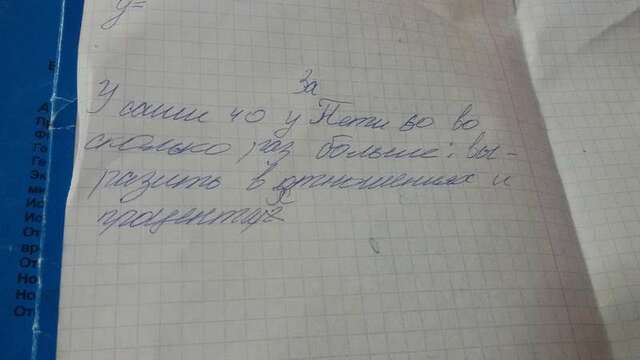 y=
За
У саши 40 у Пети 60 во
сколько раз больше: вы-
разить в отношениях и
процентах